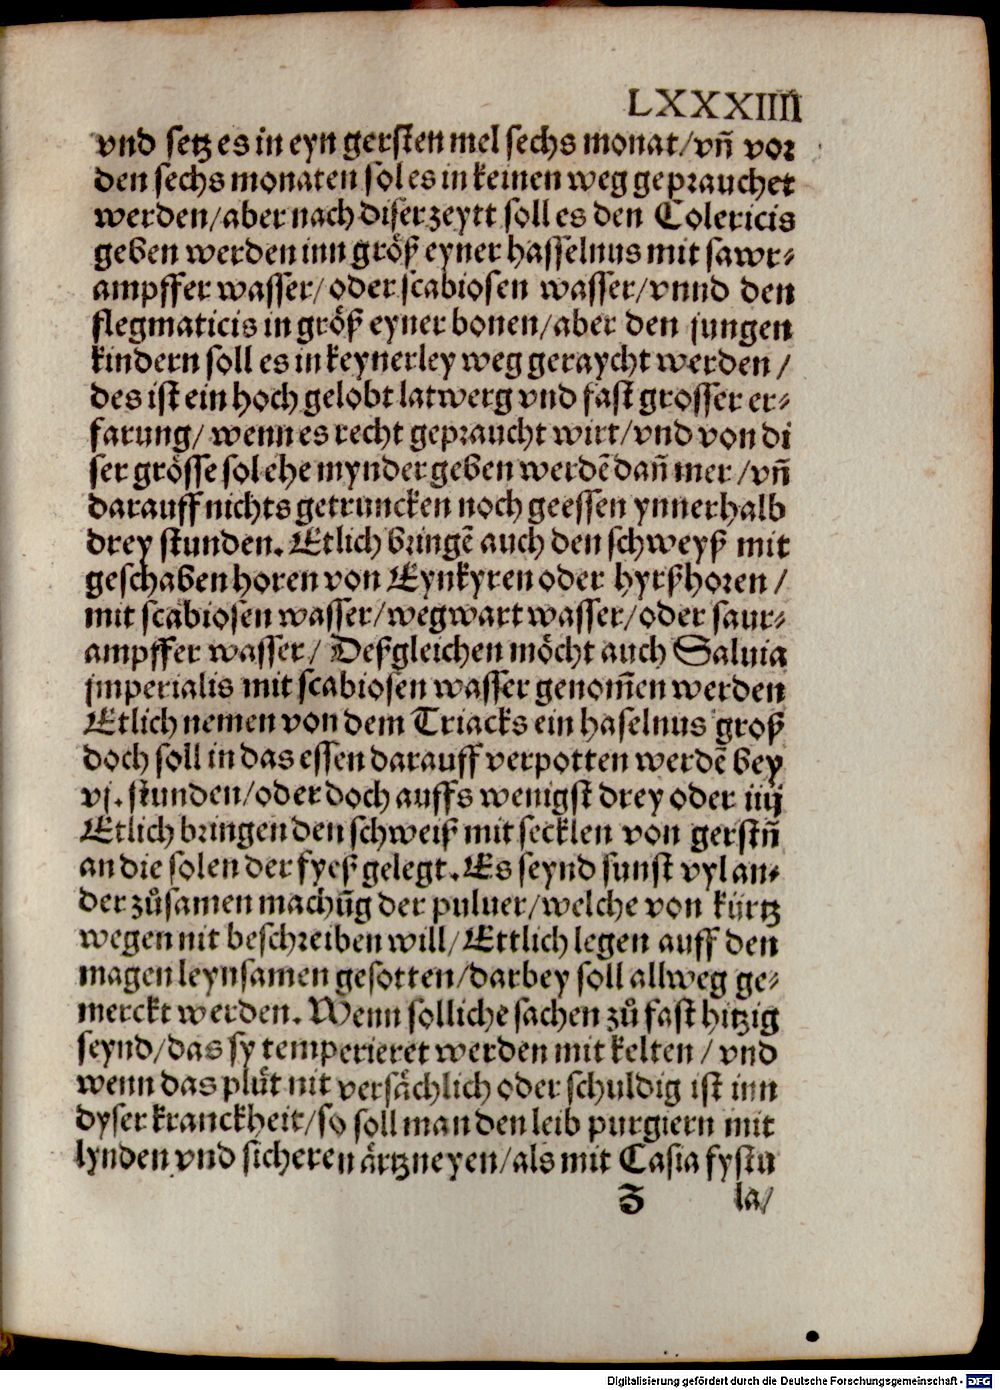 LXXXIIII
vnd setz es in eyn gersten mel sechs monat/vñ vor
den sechs monaten sol es in keinen weg gepraucht
werden/aber nach diser zeytt soll es den Colericis
geben werden inn größ eyner hasselnus mit sawr⸗
ampffer wasser/oder scabiosen wasser/vnnd den
flegmaticis in größ eyner bonen/aber den jungen
kindern soll es in keynerley weg geraycht werden/
des ist ein hoch gelobt latwerg vnd fast grosser er⸗
farung/ wenn es recht gepraucht wirt/vnd von di
ser grösse sol ehe mynder geben werdẽ dañ mer/vñ
darauff nichts getruncken noch geessen ynnerhalb
drey stunden. Etlich bringẽ auch den schweyß mit
geschaben horen von Eynkyren oder hyrßhoren/
mit scabiosen wasser/wegwart wasser/oder saur⸗
ampffer wasser/ Deßgleichen möcht auch Saluia
jmperialis mit scabiosen wasser genom̃en werden
Etlich nemen von dem Triacks ein haselnus groß
doch soll in das essen darauff verpotten werdẽ bey
vj. stunden/oder doch auffs wenigst drey oder iiij
Etlich bringen den schweiß mit secklen von gerstñ
an die solen der fyeß gelegt. Es seynd sunst vyl an⸗
der zůsamen machũg der puluer/welche von kürtz
wegen nit beschreiben will/Ettlich legen auff den
magen leynsamen gesotten/darbey soll allweg ge⸗
merckt werden. Wenn solliche sachen zů fast hitzig
seynd/das sy temperieret werden mit kelten/vnd
wenn das plůt nit versächlich oder schuldig ist inn
dyser kranckheit/so soll man den leib purgiern mit
lynden vnd sicheren ärtzneyen/als mit Casia fystu
Z la/
Digitalisierung gefördert durch die Deutsche Forschungsgemeinschaft - DFG